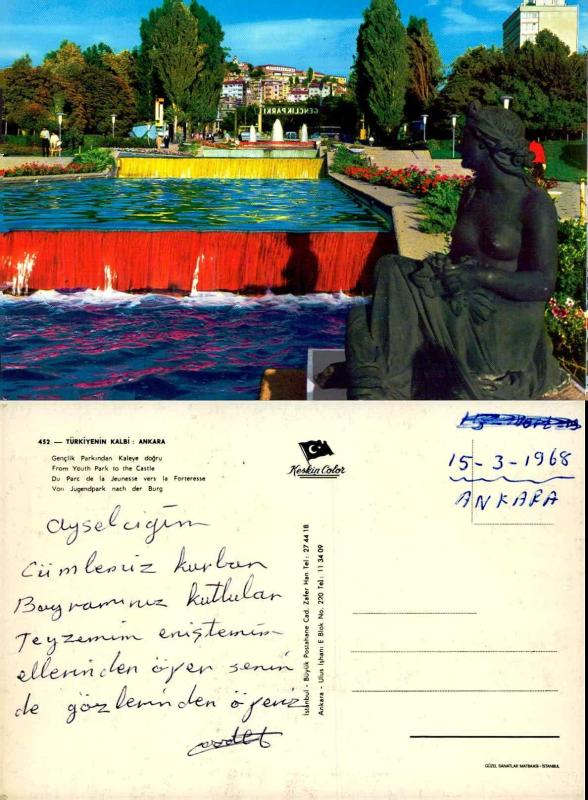 GENÇLİK PARKI
452 — TÜRKİYENİN KALBİ : ANKARA
Gençlik Parkından Kaleye doğru
From Youth Park to the Castle
Du Parc de la Jeunesse vers la Forteresse
Von Jugendpark nach der Burg
Keskin Color
15-3-1968
ANKARA
Ayselciğim
Cümleniz kurban
Bayramınız kutlular
Teyzemin eniştemin
ellerinden öper senin
de gözlerinden öperiz
İstanbul - Büyük Postahane Cad. Zafer Han Tel : 27 44 18
Ankara - Ulus İşhanı E Blok No. 220 Tel : 11 34 09
GÜZEL SANATLAR MATBAASI-İSTANBUL